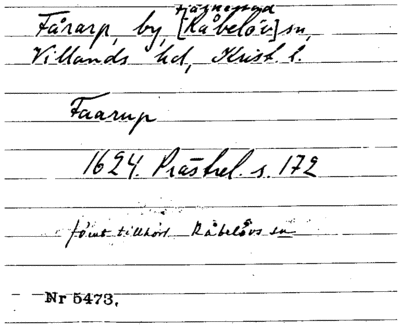 Fjälkestad
Fårarp, by, [Råbelöv] sn,
Villands hd, Krist. l.
Faarup
1624. Prästrel. s. 172
förut tillhört Råbelövs sn
Nr 5473.